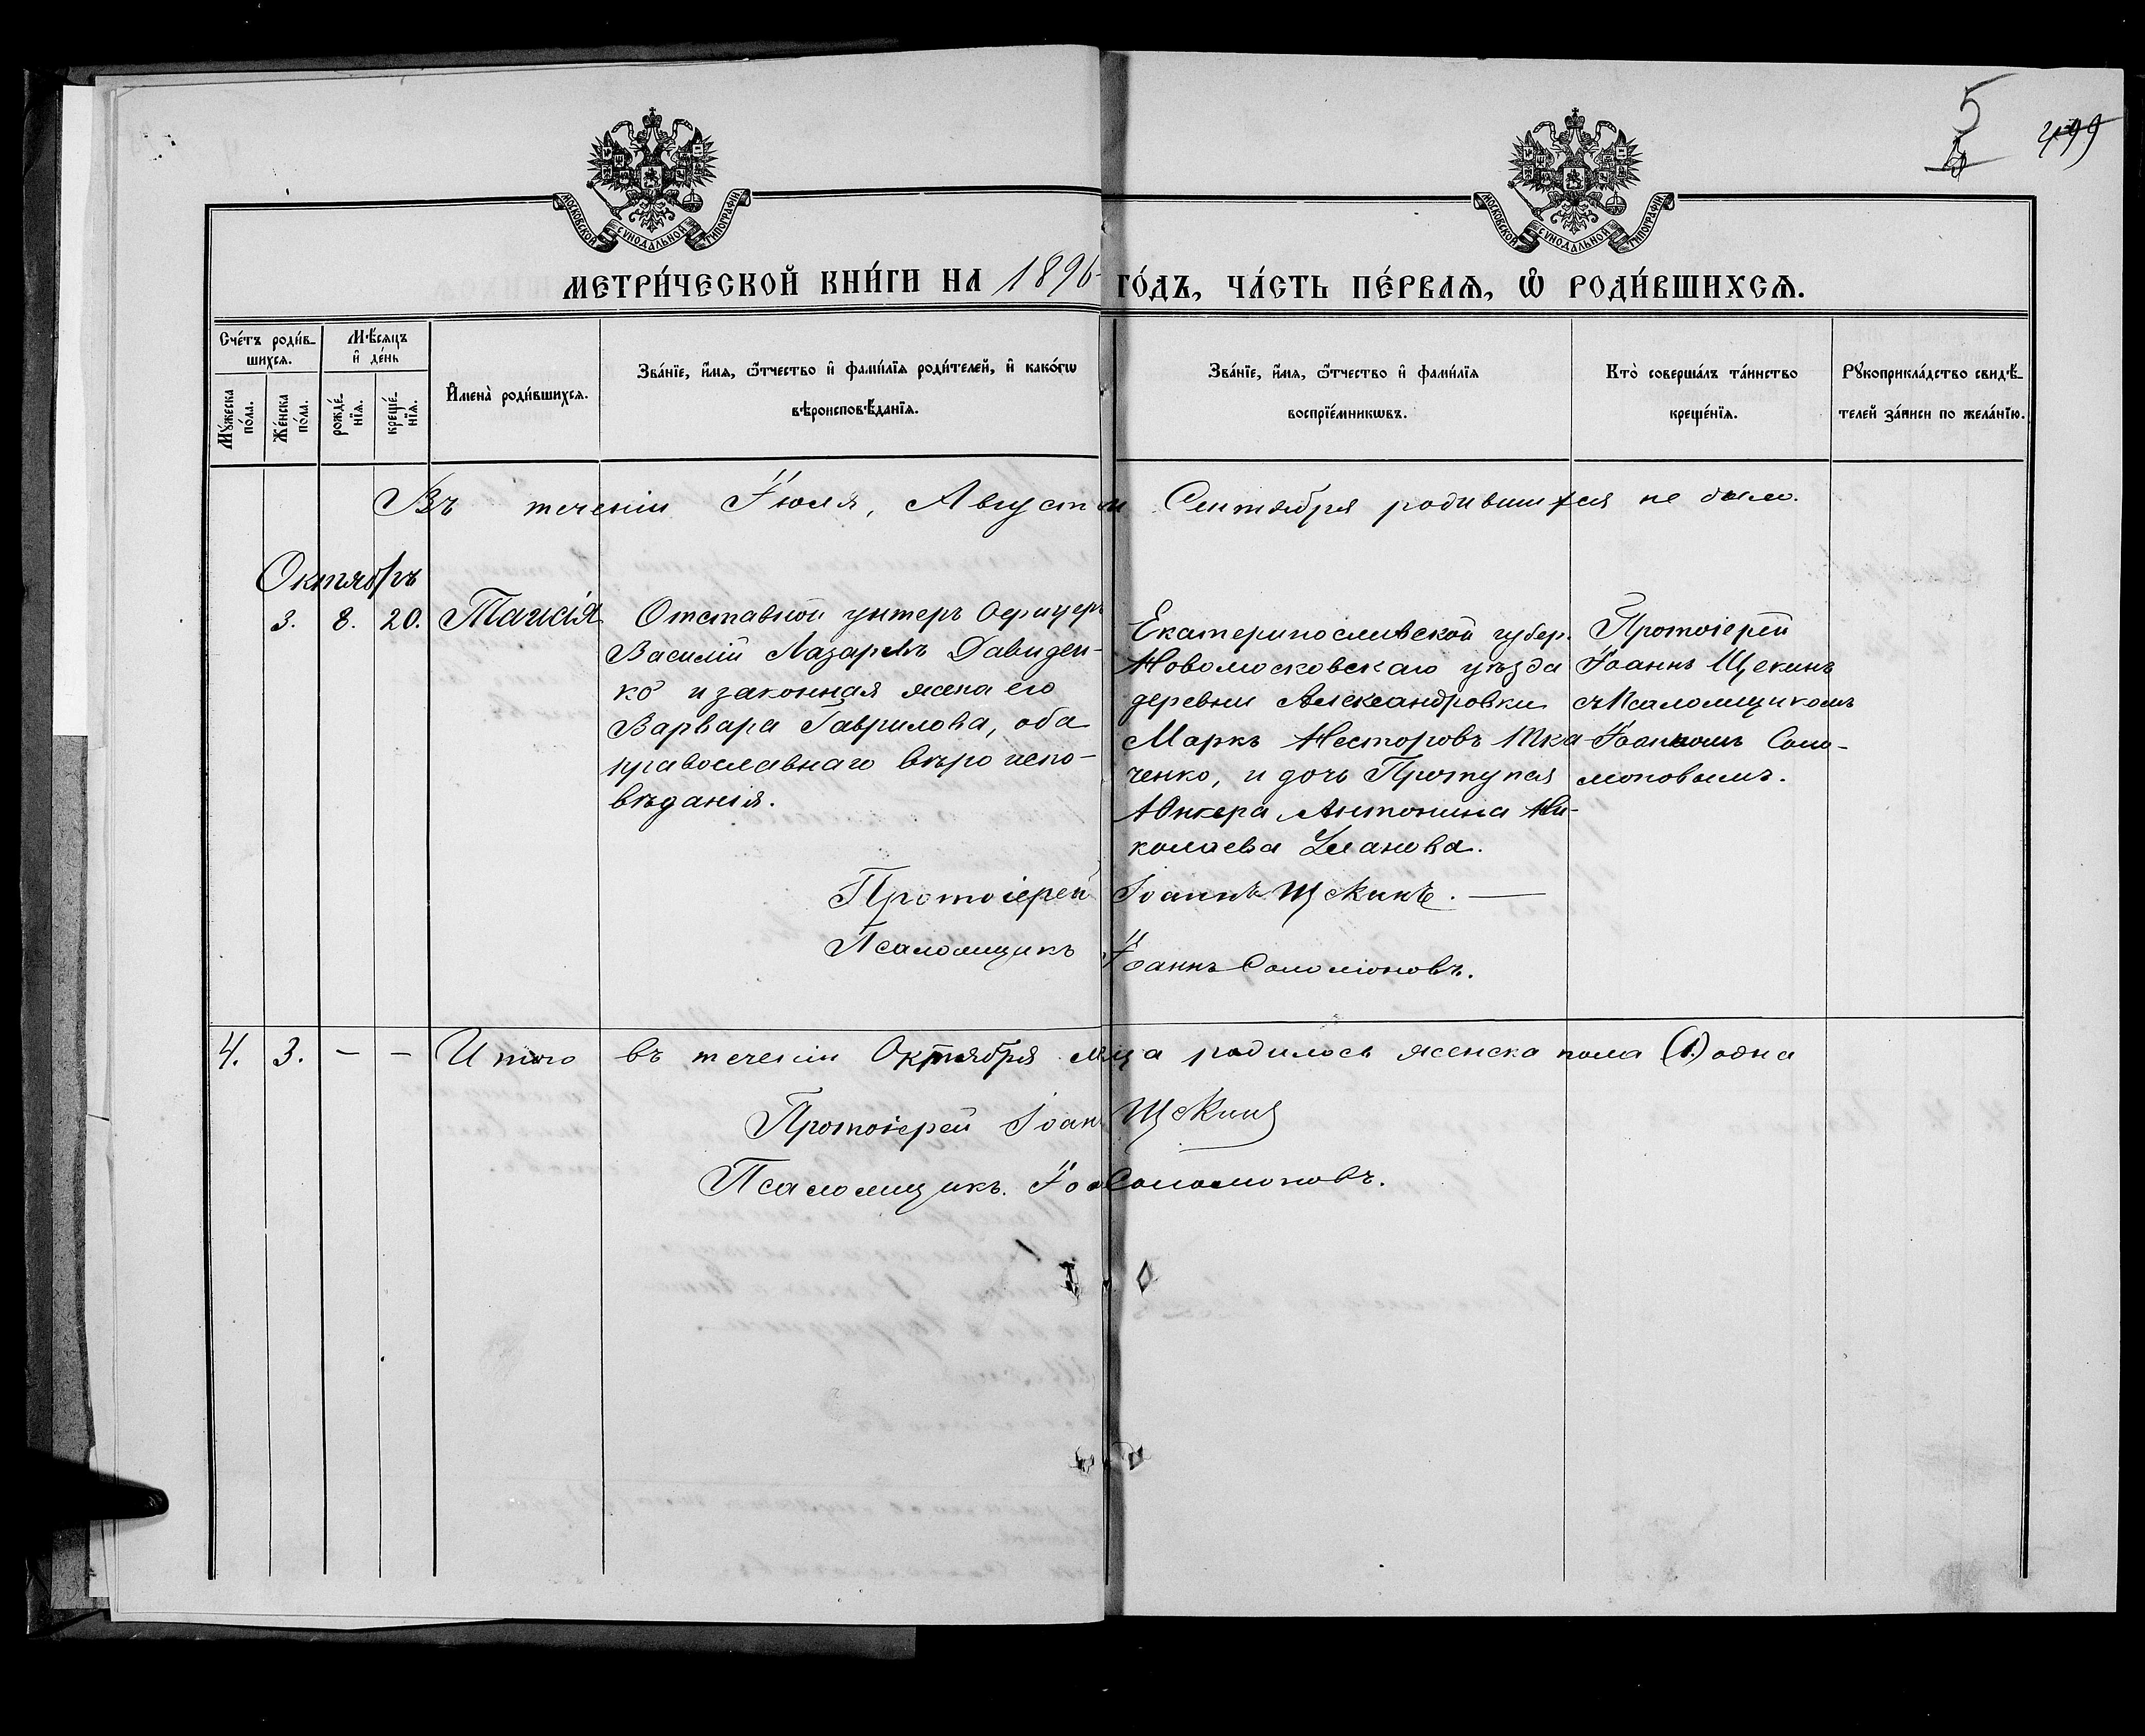 5
499
МОСКОВСКОЙ СУНОДАЛЬНОЙ ТИПОГРАФІИ
МОСКОВСКОЙ СУНОДАЛЬНОЙ ТИПОГРАФІИ
МЕТРИ́ЧЕСКОЙ КНИ́ГИ НА 1896 ГО́ДЪ, ЧА́СТЬ ПЕ́РВАѦ, Ѡ҆ РОДИ́ВШИХСѦ.
Сче́тъ роди́в-
шихсѧ.
Мꙋ́жеска
по́ла.
Же́нска
по́ла.
Мѣ́сѧцъ
и҆ де́нь
рожде́-
нїѧ.
креще́-
нїѧ.
И҆мена̀ роди́вшихсѧ.
Зва́нїе, и҆́мѧ, ѻ҆́тчество и҆ фами́лїѧ роди́телей, и҆ како́гѡ
вѣроисповѣ́данїѧ.
Зва́нїе, и҆́мѧ, ѻ҆́тчество и҆ фами́лїѧ
воспрїе́мникѡвъ.
Кто̀ соверша́лъ та́инство
креще́нїѧ.
Рꙋкоприкла́дство свидѣ́-
телей за́писи по жела́нїю.
Въ теченіи Іюля, Август и Сентября родившихся не было.
Октябрь
3. 8. 20. Таисія
Отставной унтеръ Офицеръ
Василій Лазаревъ Давиден-
ко и законная жена его
Варвара Гаврилова, оба
православнаго вѣроиспо-
вѣданія.
Екатеринославской губер.
Новомосковскаго уѣзда
деревни Александровки
Маркъ Несторовъ Тка
ченко, и дочь Протупея
Юнкера Антонина Ни-
колаева Уланова.
Протоіерей
Іоаннъ Щекинъ
съ Псаломщикомъ
Іоанномъ Соло-
моновымъ.
Протоіерей Іоаннъ Щекинъ.
Псаломщикъ Іоаннъ Соломоновъ.
4. 3. – – Итого въ теченіи Октября мца родилось женска пола (1) одна
Протоіерей Іоан Щекинъ
Псаломщикъ. Іоа Соломоновъ.